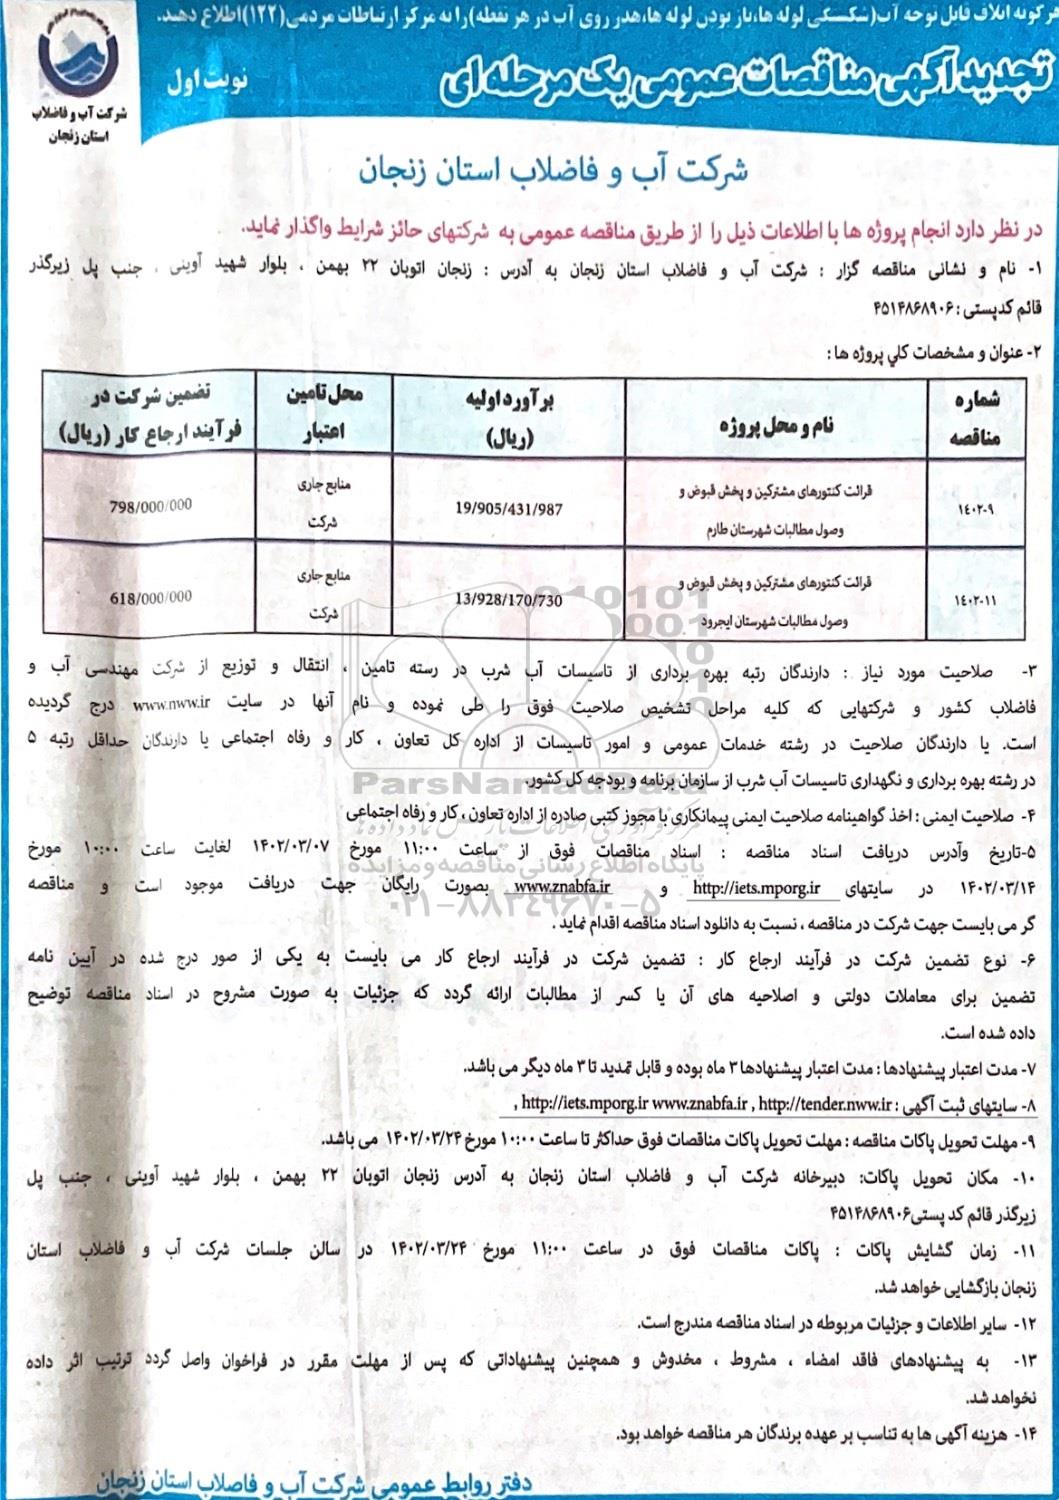 هرگونه اتلاف قابل توجه آب(شکستگی لوله ها،باز بودن لوله ها،هدر روی آب در هر نقطه)را به مرکز ارتباطات مردمی(۱۲۲)اطلاع دهید.
تجدید آگهی مناقصات عمومی یک مرحله ای
نوبت اول
شرکت آب و فاضلاب
استان زنجان
شرکت آب و فاضلاب استان زنجان
در نظر دارد انجام پروژه ها با اطلاعات ذیل را از طریق مناقصه عمومی به شرکتهای حائز شرایط واگذار نماید.
۱- نام و نشانی مناقصه گزار : شرکت آب و فاضلاب استان زنجان به آدرس : زنجان اتوبان ۲۲ بهمن ، بلوار شهید آوینی ، جنب پل زیرگذر
قائم کدپستی : ۴۵۱۴۸۶۸۹۰۶
۲- عنوان و مشخصات کلي پروژه ها :
شماره مناقصه | نام و محل پروژه | برآورد اولیه (ریال) | محل تامین اعتبار | تضمین شرکت در فرآیند ارجاع کار (ریال)
۱٤۰۲-۹ | قرائت کنتورهای مشترکین و پخش قبوض و وصول مطالبات شهرستان طارم | 19/905/431/987 | منابع جاری شرکت | 798/000/000
۱٤۰۲-۱۱ | قرائت کنتورهای مشترکین و پخش قبوض و وصول مطالبات شهرستان ایجرود | 13/928/170/730 | منابع جاری شرکت | 618/000/000
۳- صلاحیت مورد نیاز : دارندگان رتبه بهره برداری از تاسیسات آب شرب در رسته تامین ، انتقال و توزیع از شرکت مهندسی آب و
فاضلاب کشور و شرکتهایی که کلیه مراحل تشخیص صلاحیت فوق را طی نموده و نام آنها در سایت www.nww.ir درج گردیده
است. یا دارندگان صلاحیت در رشته خدمات عمومی و امور تاسیسات از اداره کل تعاون ، کار و رفاه اجتماعی یا دارندگان حداقل رتبه ۵
در رشته بهره برداری و نگهداری تاسیسات آب شرب از سازمان برنامه و بودجه کل کشور.
۴- صلاحیت ایمنی : اخذ گواهینامه صلاحیت ایمنی پیمانکاری با مجوز کتبی صادره از اداره تعاون ، کار و رفاه اجتماعی
۵-تاریخ وآدرس دریافت اسناد مناقصه : اسناد مناقصات فوق از ساعت ۱۱:۰۰ مورخ ۱۴۰۲/۰۳/۰۷ لغایت ساعت ۱۰:۰۰ مورخ
۱۴۰۲/۰۳/۱۴ در سایتهای http://iets.mporg.ir و www.znabfa.ir بصورت رایگان جهت دریافت موجود است و مناقصه
گر می بایست جهت شرکت در مناقصه ، نسبت به دانلود اسناد مناقصه اقدام نماید .
۶- نوع تضمین شرکت در فرآیند ارجاع کار : تضمین شرکت در فرآیند ارجاع کار می بایست به یکی از صور درج شده در آیین نامه
تضمین برای معاملات دولتی و اصلاحیه های آن یا کسر از مطالبات ارائه گردد که جزئیات به صورت مشروح در اسناد مناقصه توضیح
داده شده است.
۷- مدت اعتبار پیشنهادها : مدت اعتبار پیشنهادها ۳ ماه بوده و قابل تمدید تا ۳ ماه دیگر می باشد.
۸- سایتهای ثبت آگهی : http://iets.mporg.ir www.znabfa.ir , http://tender.nww.ir ,
۹- مهلت تحویل پاکات مناقصه : مهلت تحویل پاکات مناقصات فوق حداکثر تا ساعت ۱۰:۰۰ مورخ ۱۴۰۲/۰۳/۲۴ می باشد.
۱۰- مکان تحویل پاکات: دبیرخانه شرکت آب و فاضلاب استان زنجان به آدرس زنجان اتوبان ۲۲ بهمن ، بلوار شهید آوینی ، جنب پل
زیرگذر قائم کد پستی۴۵۱۴۸۶۸۹۰۶
۱۱- زمان گشایش پاکات : پاکات مناقصات فوق در ساعت ۱۱:۰۰ مورخ ۱۴۰۲/۰۳/۲۴ در سالن جلسات شرکت آب و فاضلاب استان
زنجان بازگشایی خواهد شد.
۱۲- سایر اطلاعات و جزئیات مربوطه در اسناد مناقصه مندرج است.
۱۳- به پیشنهادهای فاقد امضاء ، مشروط ، مخدوش و همچنین پیشنهاداتی که پس از مهلت مقرر در فراخوان واصل گردد ترتیب اثر داده
نخواهد شد.
۱۴- هزینه آگهی ها به تناسب بر عهده برندگان هر مناقصه خواهد بود.
دفتر روابط عمومی شرکت آب و فاضلاب استان زنجان
ParsNamadData
پایگاه اطلاع رسانی مناقصه و مزایده
۰۲۱-۸۸۳۴۹۶۷۰-۵